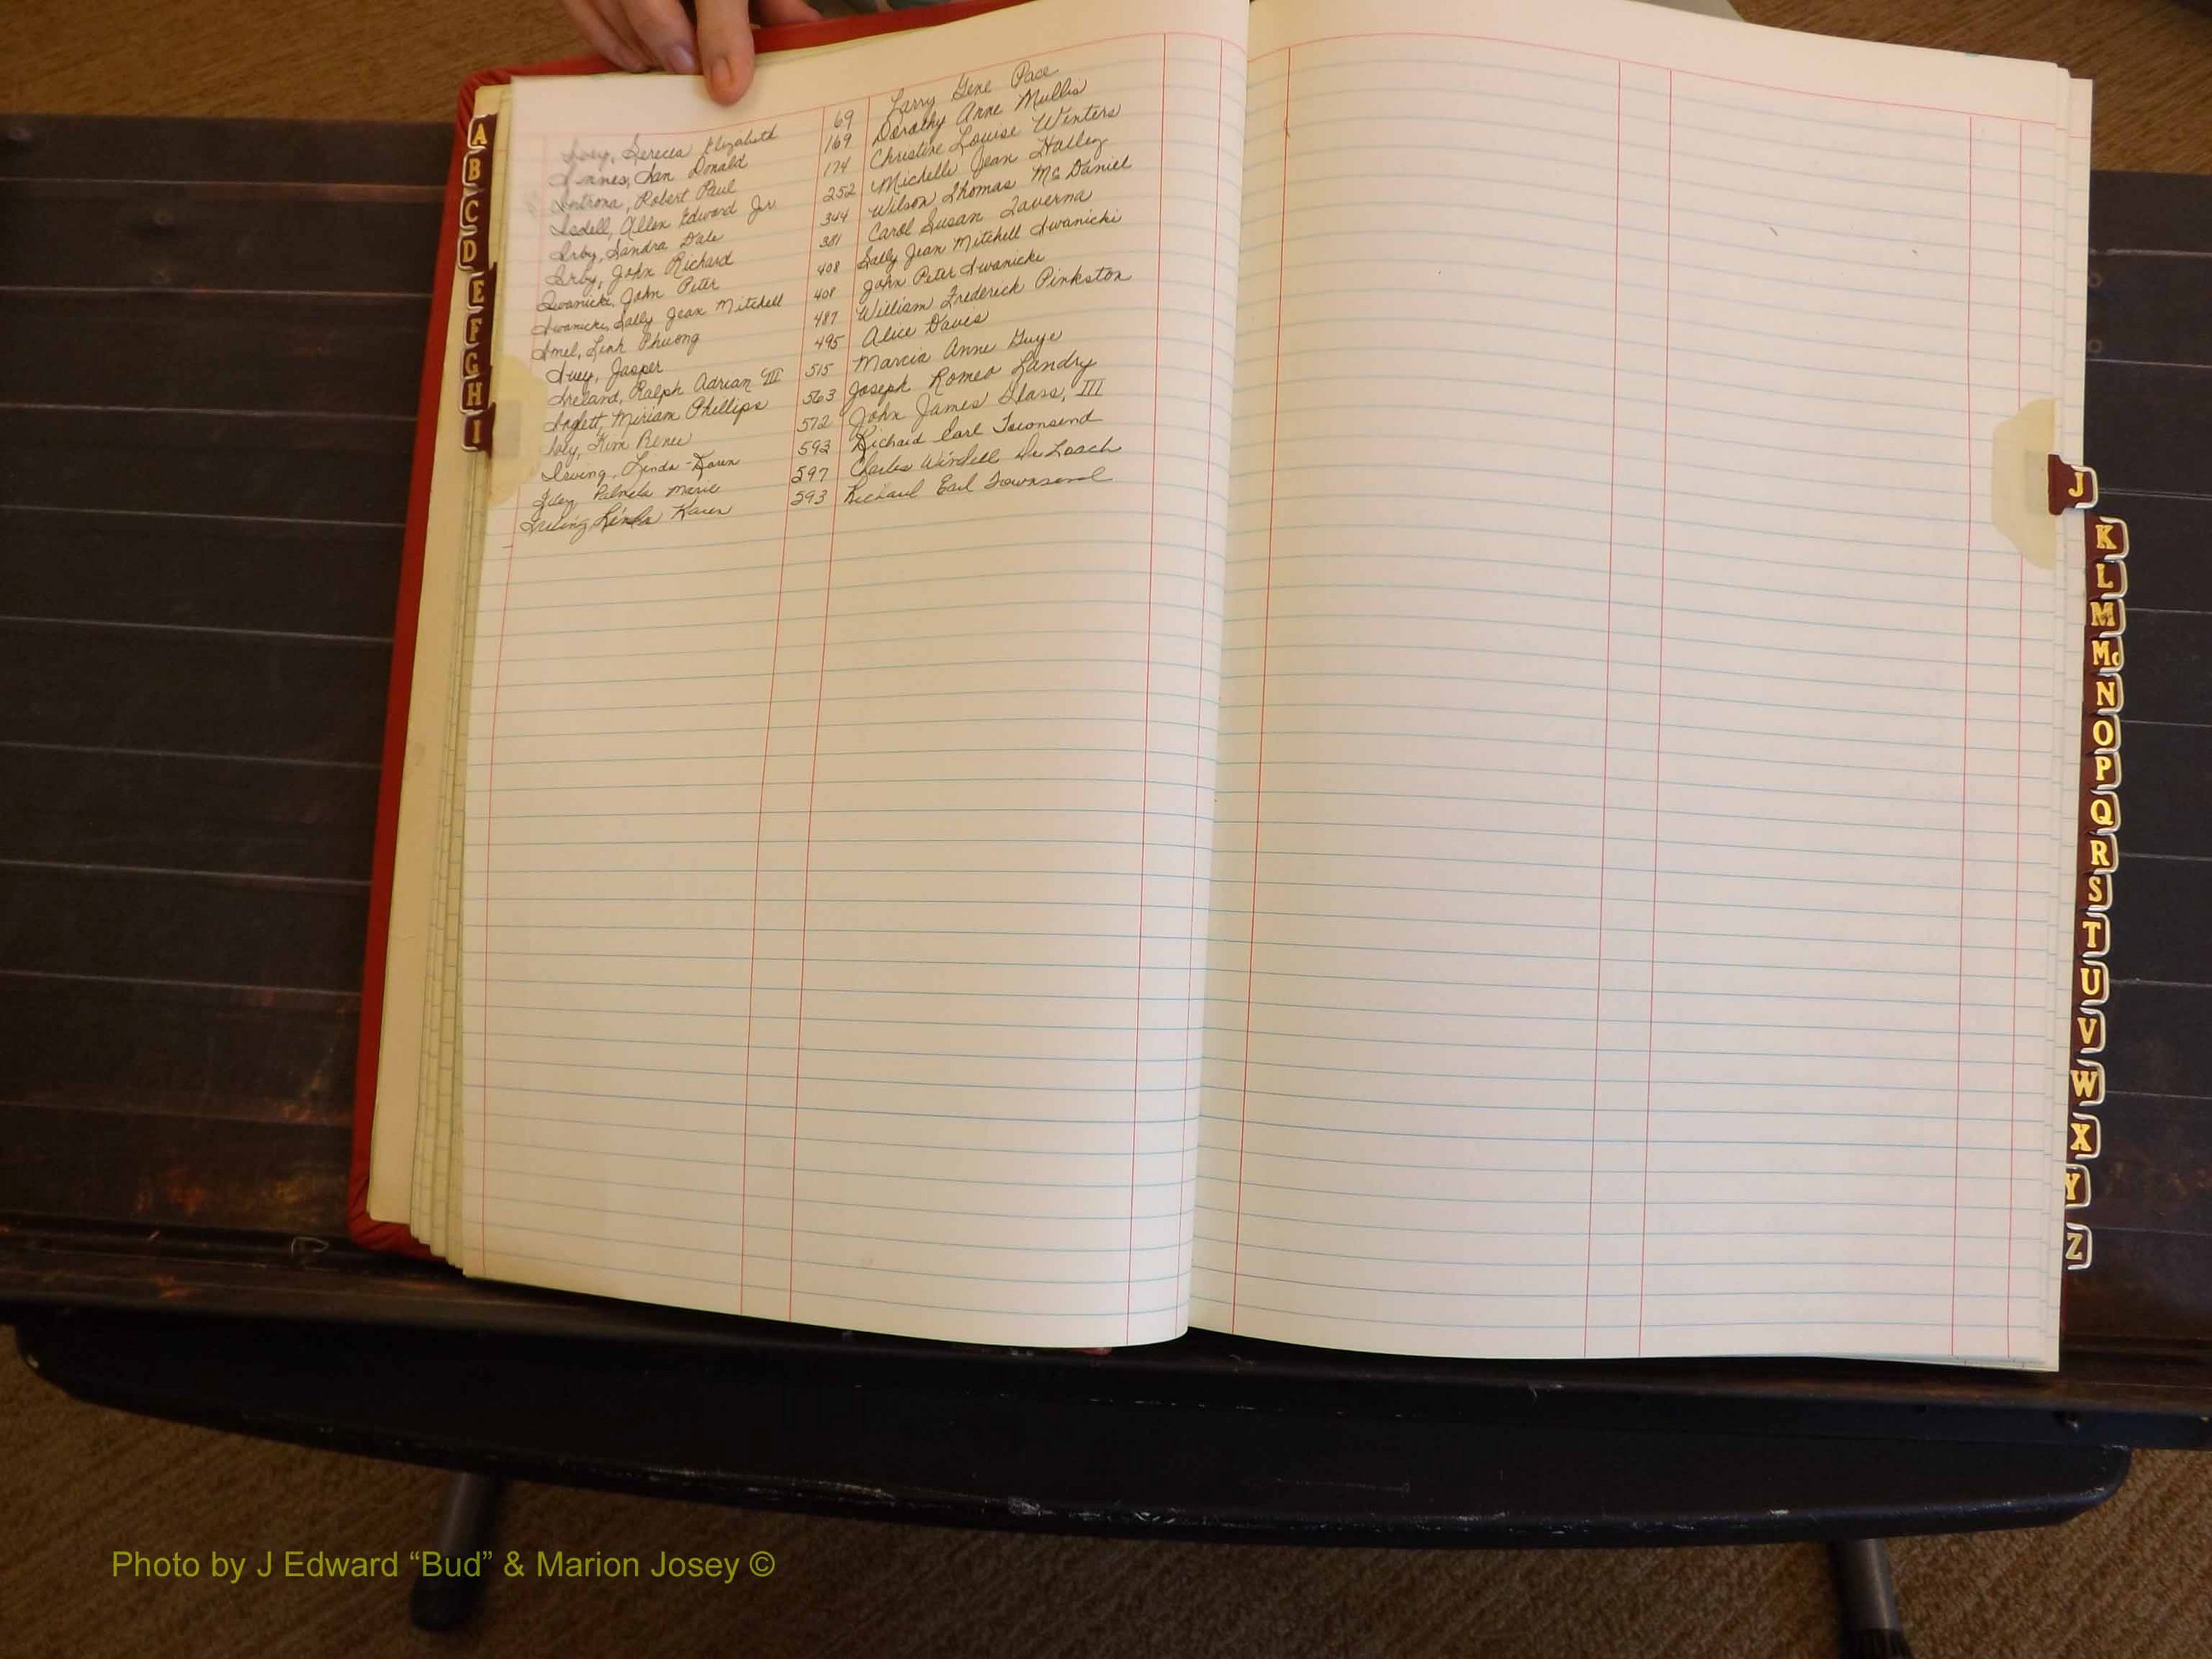 Ivey, Teresa Elizabeth 69 Larry Gene Pace
Innes, Ian Donald 169 Dorothy Anne Mullis
Introna, Robert Paul 174 Christine Louise Winters
Isdell, Allen Edward Jr. 252 Michelle Jean Halley
Irby, Sandra Dale 344 Wilson Thomas McDaniel
Irby, John Richard 381 Carol Susan Taverna
Iwanicki, John Peter 408 Sally Jean Mitchell Iwanicki
Iwanicki, Sally Jean Mitchell 408 John Peter Iwanicki
Imel, Linh Phuong 487 William Frederick Pinkston
Ivey, Jasper 495 Alice Daves
Ireland, Ralph Adrian III 515 Marcia Anne Guye
Inglett, Miriam Phillips 563 Joseph Romeo Landry
Ivey, Kim Renee 572 John James Glass, III
Irving, Linda-Karen 593 Richard Earl Townsend
Ivey, Pamela Marie 597 Charles Windell DeLoach
Irving Linda Karen 593 Richard Earl Townsend
A
B
C
D
E
F
G
H
I
J
K
L
M
Mc
N
O
P
Q
R
S
T
U
V
W
X
Y
Z
Photo by J Edward “Bud” & Marion Josey ©